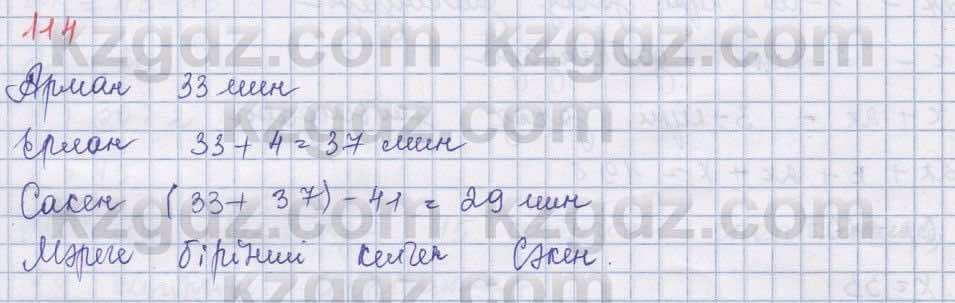 114
kzgdz.com kzgdz.com
Арман 33 мин
kzgdz.com
Ерлан 33 + 4 = 37 мин
Сакен (33 + 37) - 41 = 29 мин
kzgdz.com kzgdz.com
Мәреге бірінші келген Сәкен.
kzgdz.com